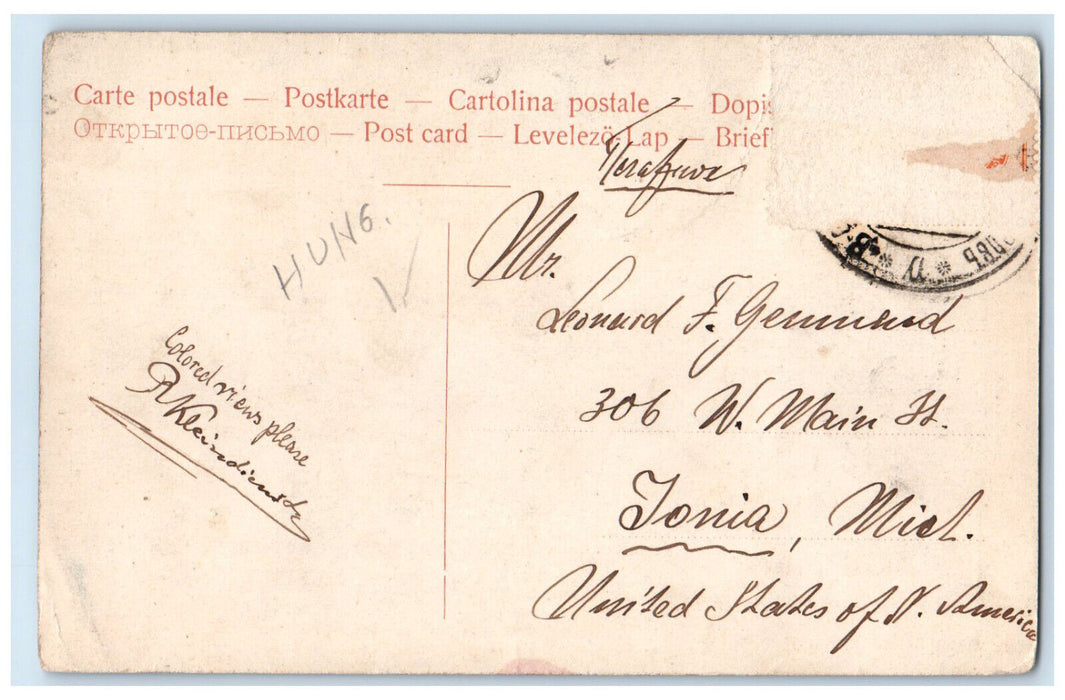 Carte postale — Postkarte — Cartolina postale — Dopis
Открытое-письмо — Post card — Levelező-Lap — Brief
HUNG.
Mr.
Leonard F. Gemmund
306 W. Main St.
Ionia, Mich.
United States of N. America
Colored views please
R Kleindienst